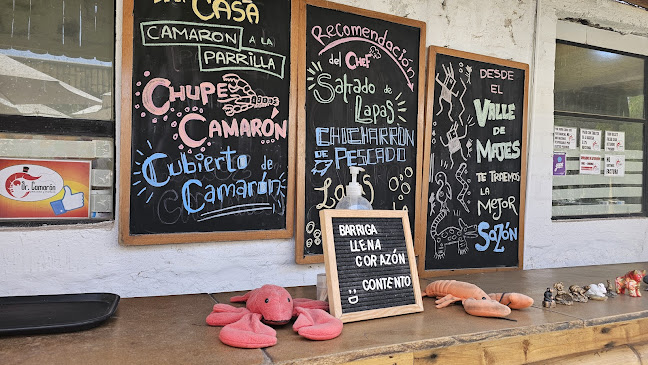 CASA
CAMARON A LA
PARRILLA
CHUPE
DE
CAMARÓN
Cubierto de
CAMARÓN
Recomendación
del Chef
Saltado de
LAPAS
CHICHARRÓN
DE PESCADO
DESDE
EL
VALLE
DE
MAJES
TE TRAEMOS
LA
MEJOR
SAZÓN
Dr. Camarón
BARRIGA
LLENA
CORAZÓN
CONTENTO